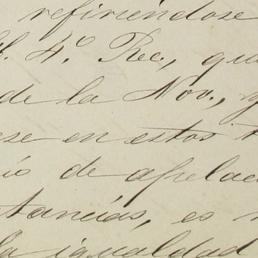 refiriéndose
l. 4.º Rec., que
de la Nov., y
ese en estos t
io de apelac
tancias, es
la igualdad